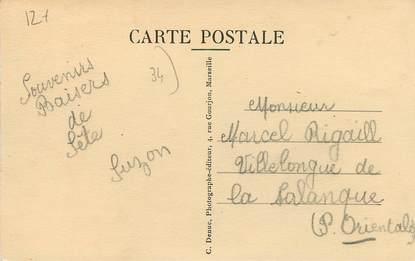 12+
CARTE POSTALE
34)
Souvenirs
Baisers
de
Sète
Suzon
C. Denuc, Photographe-éditeur, 4, rue Goujon, Marseille
Monsieur
Marcel Rigaill
Villelongue de
la Salanque
(P. Orientales